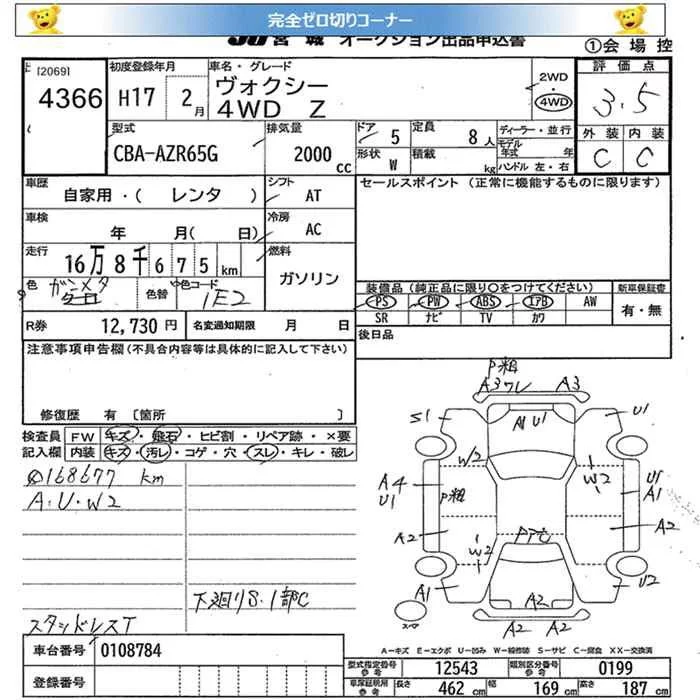 完全ゼロ切りコーナー
JU宮城 オークション出品申込書
①会場控
[2069]
4366
初度登録年月
H17 2月
車名・グレード
ヴォクシー
4WD Z
2WD
・
4WD
評価点
3.5
外装 内装
C C
型式
CBA-AZR65G
排気量
2000 cc
ドア 5
形状 W
定員 8人
積載 kg
ディーラー・並行
モデル年式 年
ハンドル 左・右
車歴
自家用・( レンタ )
シフト
AT
セールスポイント (正常に機能するものに限ります)
車検
年 月( 日)
冷房
AC
走行
16万8千675km
燃料
ガソリン
色
ガンメタ
色替
色コード
1E2
装備品 (純正品に限り○をつけてください)
新車保証書
PS PW ABS エアB AW
SR ナビ TV カワ
有・無
R券 12,730 円
名変通知期限 月 日
後日品
注意事項申告欄(不具合内容等は具体的に記入して下さい)
修復歴 有 [箇所 ]
検査員記入欄
FW キズ・飛石・ヒビ割・リペア跡・×要
内装 キズ・汚レ・コゲ・穴・スレ・キレ・破レ
168677 km
A・U・W2
下廻りS・1部C
スタッドレスT
P粗
A3ワレ A3
S1 A1 U1 U1
W2 W2
A4
U1
P粗
U1
A1
A2 A2
W2
A1 A2 U2
A2 A2
スペア
A―キズ E―エクボ U―凹み W―補修跡 S―サビ C―腐食 XX―交換済
車台番号 0108784
登録番号
型式指定番号 参考 12543
類別区分番号 参考 0199
車庫証明用 参考 長さ 462 cm 幅 169 cm 高さ 187 cm